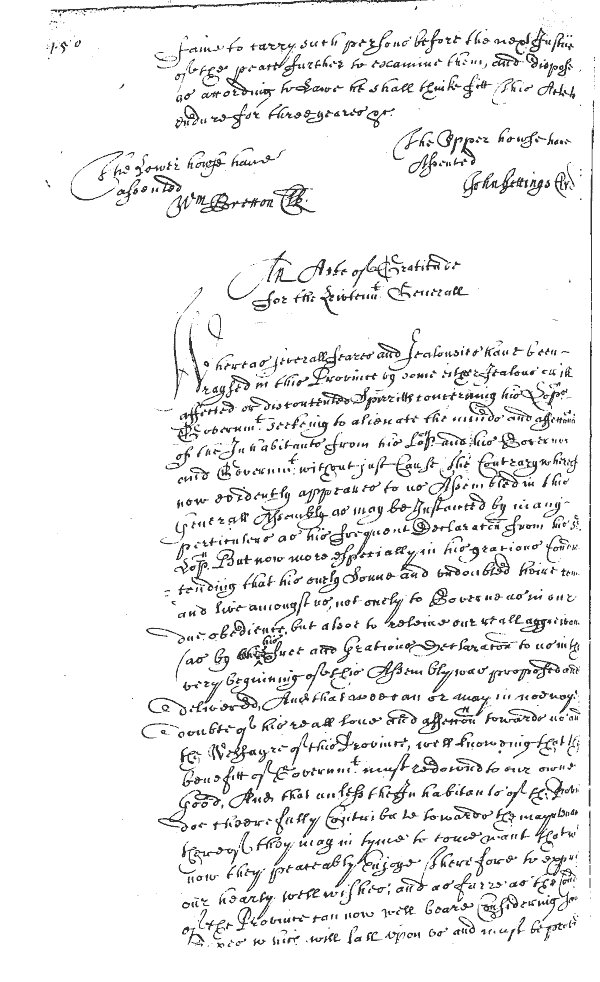 150
same to carry such persons before the next Justice
of the peace further to examine them, and dispose
as according to Lawe he shall thinke fitt This Act to
endure for three yeares &c.
The Upper howse have
Assented
The Lower howse have
assented
John Gittings Clk
Wm Bretton Clk
An Acte of Gratitude
for the Leivtennt Generall
Whereas severall feares and Jealousies have been
raysed in this Province by some either Jealous ill
affected or discontented Spirritts concerning his Lopps
Governmt. seeking to alienate the minds and affections
of the Inhabitants from his Lopp and his Governor
and Governmt. without just Cause The Contrary whereof
now evidently appeares to us Assembled in this
Generall Assembly as may be Instanced by many
perticulers as his frequent Declaracon from his
Lopp. But now more especially in his gratious
tending that his onely Sonne and undoubted heire
and live amongst us, not onely to Governe us in our
due obedience, but alsoe to releive our reall aggreivances
(as by his and Gratious Declaracon to us in the
very beginning of this Assembly was proposed and
delivered, And that wee can or may in noe waye
doubte of his reall love and affeccon towards us and
the Wellfayre of this Province, well knowing that the
benefitt of Governmt. must redownd to our owne
Good, And that unless the Inhabitants of the Province
doe cheerefully Contribute towards the maynteynance
thereof they may in tyme to come want that wch
now they peaceably Enjoye Therefore to expresse
our hearty well wishes, and as farre as the
of the Province can now well beare Considering
wch will fall upon us and must be